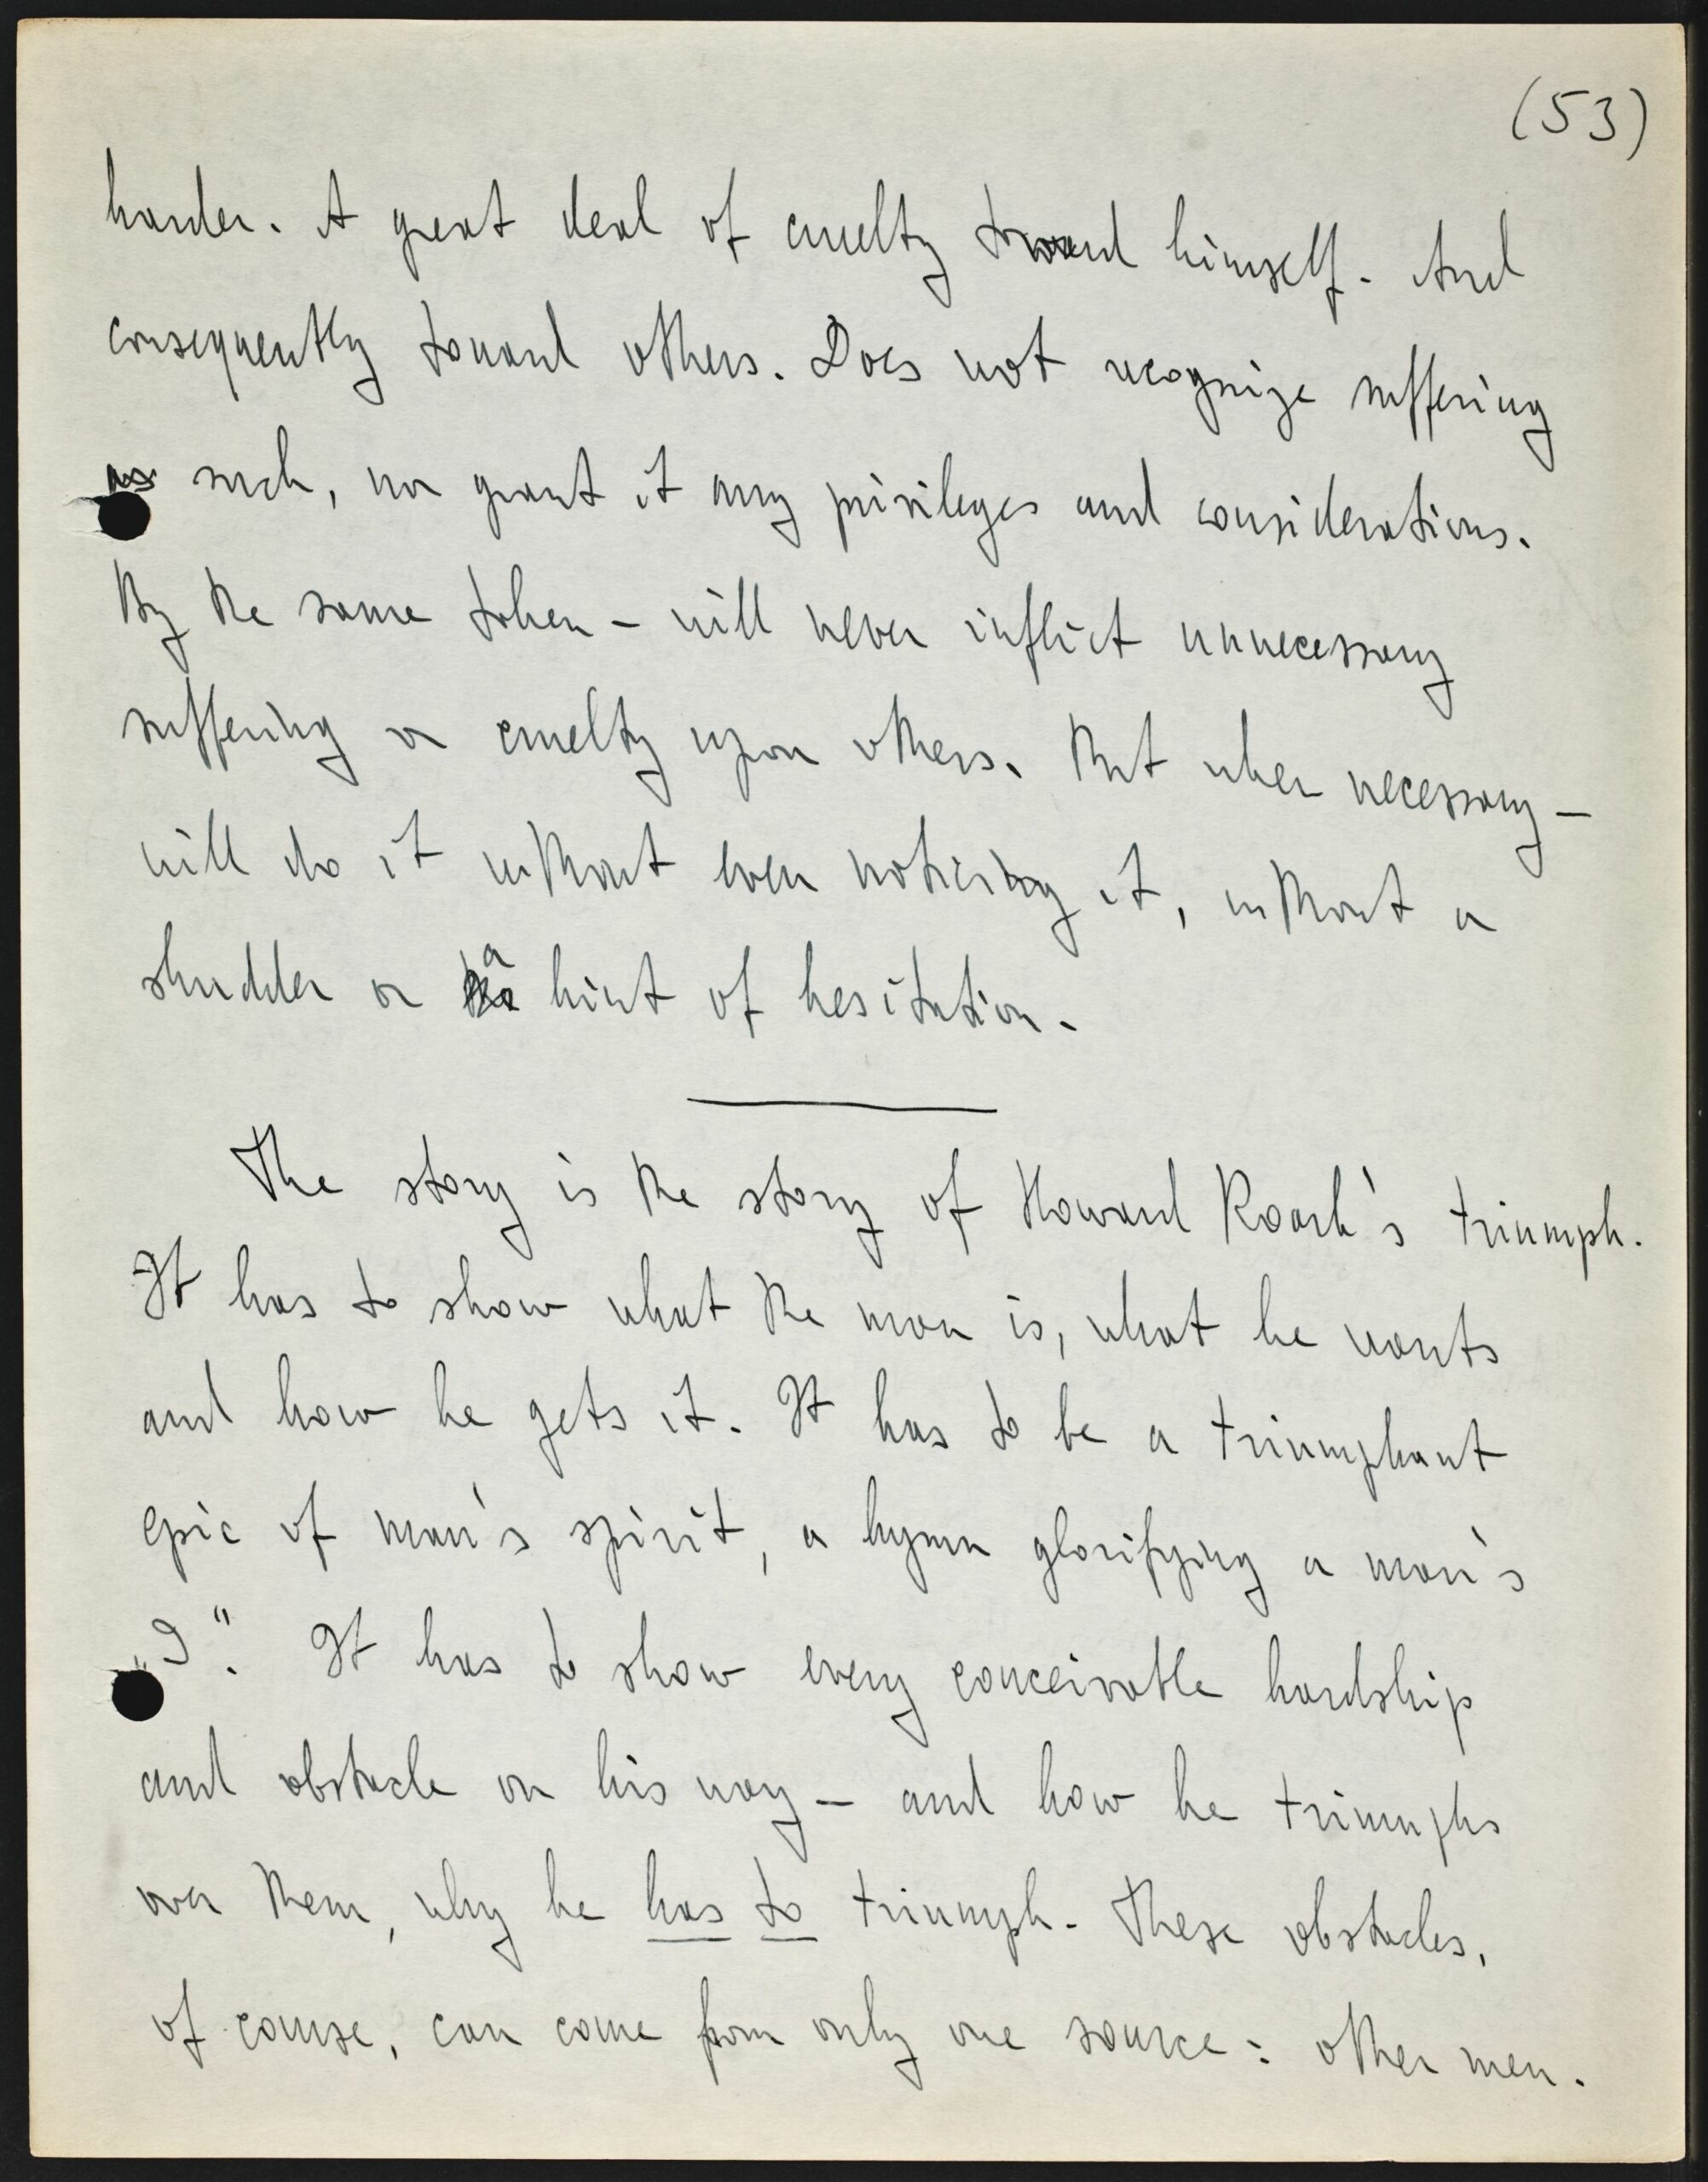 (53)
harder. A great deal of cruelty toward himself. And
consequently toward others. Does not recognize suffering
as such, nor grant it any privileges and considerations.
By the same token – will never inflict unnecessary
suffering or cruelty upon others. But when necessary –
will do it without even noticing it, without a
shudder or a hint of hesitation.
The story is the story of Howard Roark's triumph.
It has to show what the man is, what he wants
and how he gets it. It has to be a triumphant
epic of man's spirit, a hymn glorifying a man's
„I". It has to show every conceivable hardship
and obstacle on his way – and how he triumphs
over them, why he has to triumph. These obstacles,
of course, can come from only one source: other men.